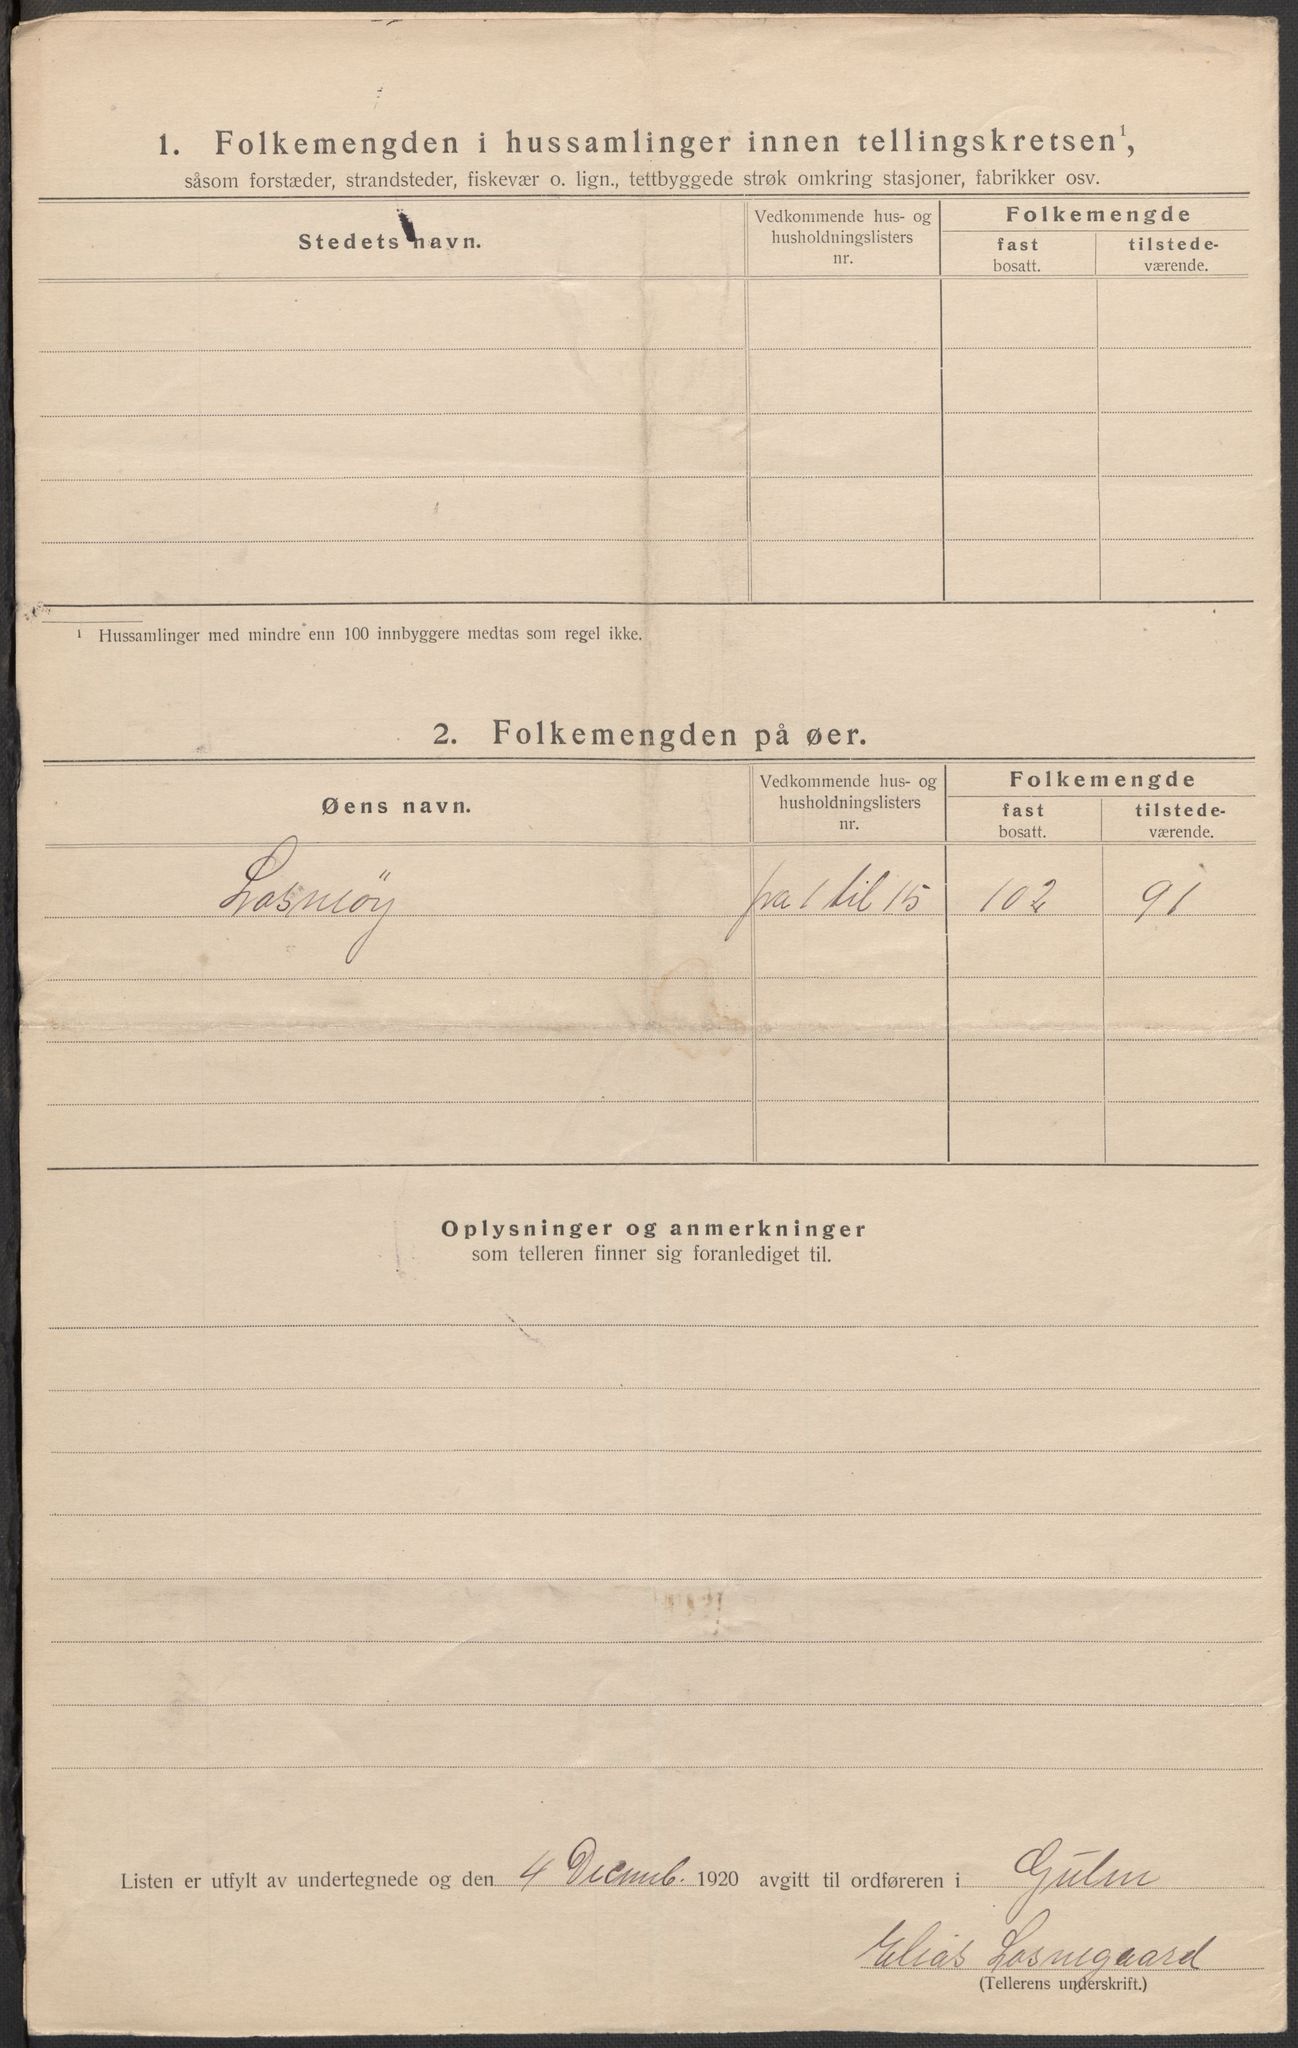 1. Folkemengden i hussamlinger innen tellingskretsen¹,
såsom forstæder, strandsteder, fiskevær o. lign., tettbyggede strøk omkring stasjoner, fabrikker osv.
Stedets navn.
Vedkommende hus- og
husholdningslisters
nr.
Folkemengde
fast
bosatt.
tilstede-
værende.
¹ Hussamlinger med mindre enn 100 innbyggere medtas som regel ikke.
2. Folkemengden på øer.
Øens navn.
Vedkommende hus- og
husholdningslisters
nr.
Folkemengde
fast
bosatt.
tilstede-
værende.
Losneöy fra 1 til 15 102 91
Oplysninger og anmerkninger
som telleren finner sig foranlediget til.
Listen er utfylt av undertegnede og den 4 Decemb. 1920 avgitt til ordføreren i Gulen
Elias Losnegaard
(Tellerens underskrift.)